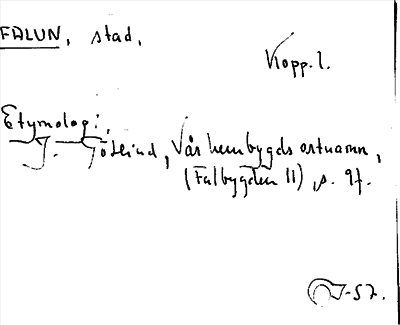 FALUN, stad,
Kopp. l.
Etymologi,
J. Götlind, Vår hembygds ortnamn,
(Falbygden II), s. 9f.
-57.